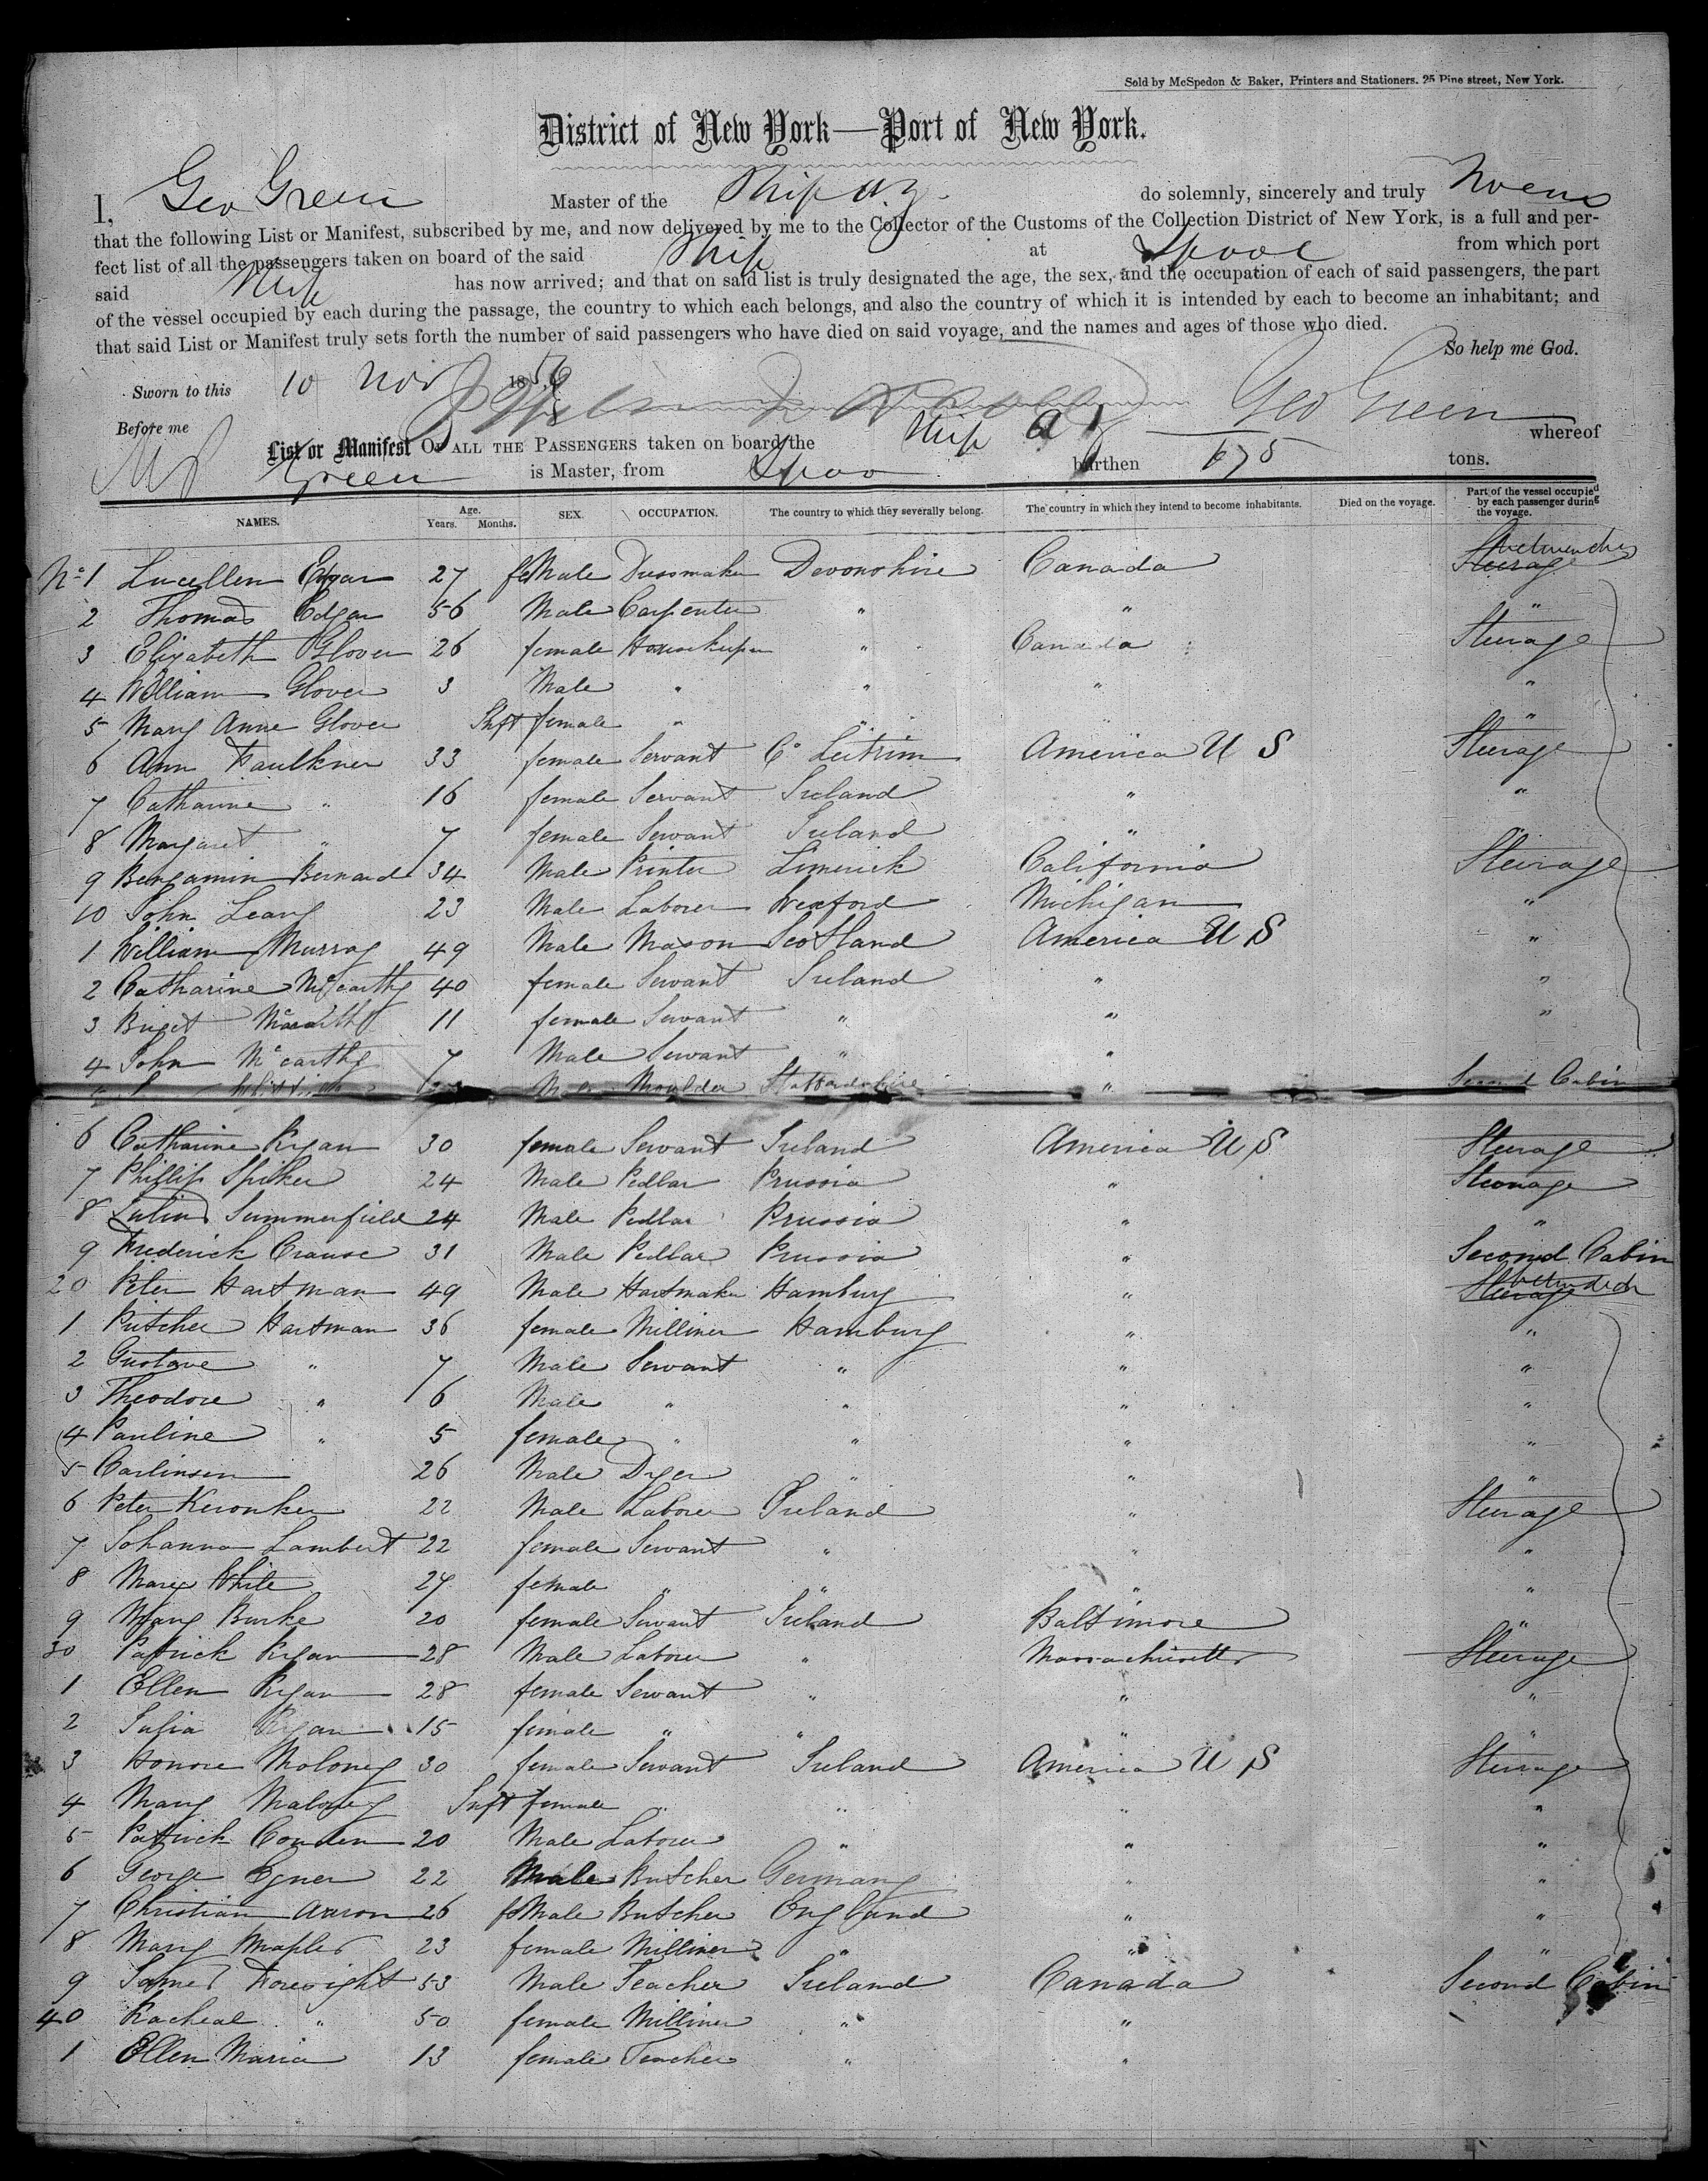 Sold by McSpedon & Baker, Printers and Stationers. 25 Pine street, New York.
District of New York—Port of New York.
I, Geo Green Master of the Ship do solemnly, sincerely and truly
that the following List or Manifest, subscribed by me, and now delivered by me to the Collector of the Customs of the Collection District of New York, is a full and per-
fect list of all the passengers taken on board of the said Ship at Lpool from which port
said Ship has now arrived; and that on said list is truly designated the age, the sex, and the occupation of each of said passengers, the part
of the vessel occupied by each during the passage, the country to which each belongs, and also the country of which it is intended by each to become an inhabitant; and
that said List or Manifest truly sets forth the number of said passengers who have died on said voyage, and the names and ages of those who died.
So help me God.
Sworn to this 10 Nov 1856 Geo Green
Before me
List or Manifest OF ALL THE PASSENGERS taken on board the Ship whereof
Green is Master, from Lpool burthen 675 tons.
NAMES. Age. Years. Months. SEX. OCCUPATION. The country to which they severally belong. The country in which they intend to become inhabitants. Died on the voyage. Part of the vessel occupied by each passenger during the voyage.
No 1 Lucellen Edgar 27 feMale Dressmaker Devonshire Canada Steerage
2 Thomas Edgar 56 Male Carpenter " " "
3 Elizabeth Glover 26 female Housekeeper " Canada Steerage
4 William Glover 3 Male " " " "
5 Mary Anne Glover Inft female " " " "
6 Ann Faulkner 33 female Servant Co Leitrim America U S Steerage
7 Catharine " 16 female Servant Ireland " "
8 Margaret " 7 female Servant Ireland " "
9 Bengamin Bernard 34 Male Printer Limerick California Steerage
10 John Leary 23 Male Laborer Wexford Michigan "
1 William Murray 49 Male Mason Scotland America U S "
2 Catharine McCarthy 40 female Servant Ireland " "
3 Briget McCarthy 11 female Servant " " "
4 John McCarthy 7 Male Servant " "
Moulder Staffordshire " Second Cabin
6 Catharine Ryan 30 female Servant Ireland America U S Steerage
7 Phillip Spiker 24 Male Pedlar Prussia " Steerage
8 Julius Summerfield 24 Male Pedlar Prussia " "
9 Frederick Crause 31 Male Pedlar Prussia " Second Cabin
20 Peter Hartman 49 Male Hamburg " Steerage
1 Hartman 36 female Milliner Hamburg " "
2 Gustave " 7 Male Servant " " "
3 Theodore " 6 Male " " " "
4 Pauline " 5 female " " " "
5 Carlinsen 26 Male Dyer " " "
6 Peter 22 Male Laborer Ireland " Steerage
7 Johanna Lambert 22 female Servant " " "
8 Mary White 27 female " " " "
9 Mary Burke 20 female Servant Ireland Baltimore "
30 Patrick Ryan 28 Male Laborer " Massachusetts Steerage
1 Ellen Ryan 28 female Servant " " "
2 Ryan 15 female " " " "
3 Honore Moloney 30 female Servant Ireland America U S Steerage
4 Mary Maloney Inft female " " " "
5 Patrick 20 Male Laborer " " "
6 George Egner 22 Male Butcher Germany " "
7 Christian Aaron 26 feMale Butcher England " "
8 Mary Maples 23 female Milliner " " "
9 James Foresight 53 Male Teacher Ireland Canada Second Cabin
40 Racheal " 50 female Milliner " "
1 Ellen Maria 13 female Teacher " "